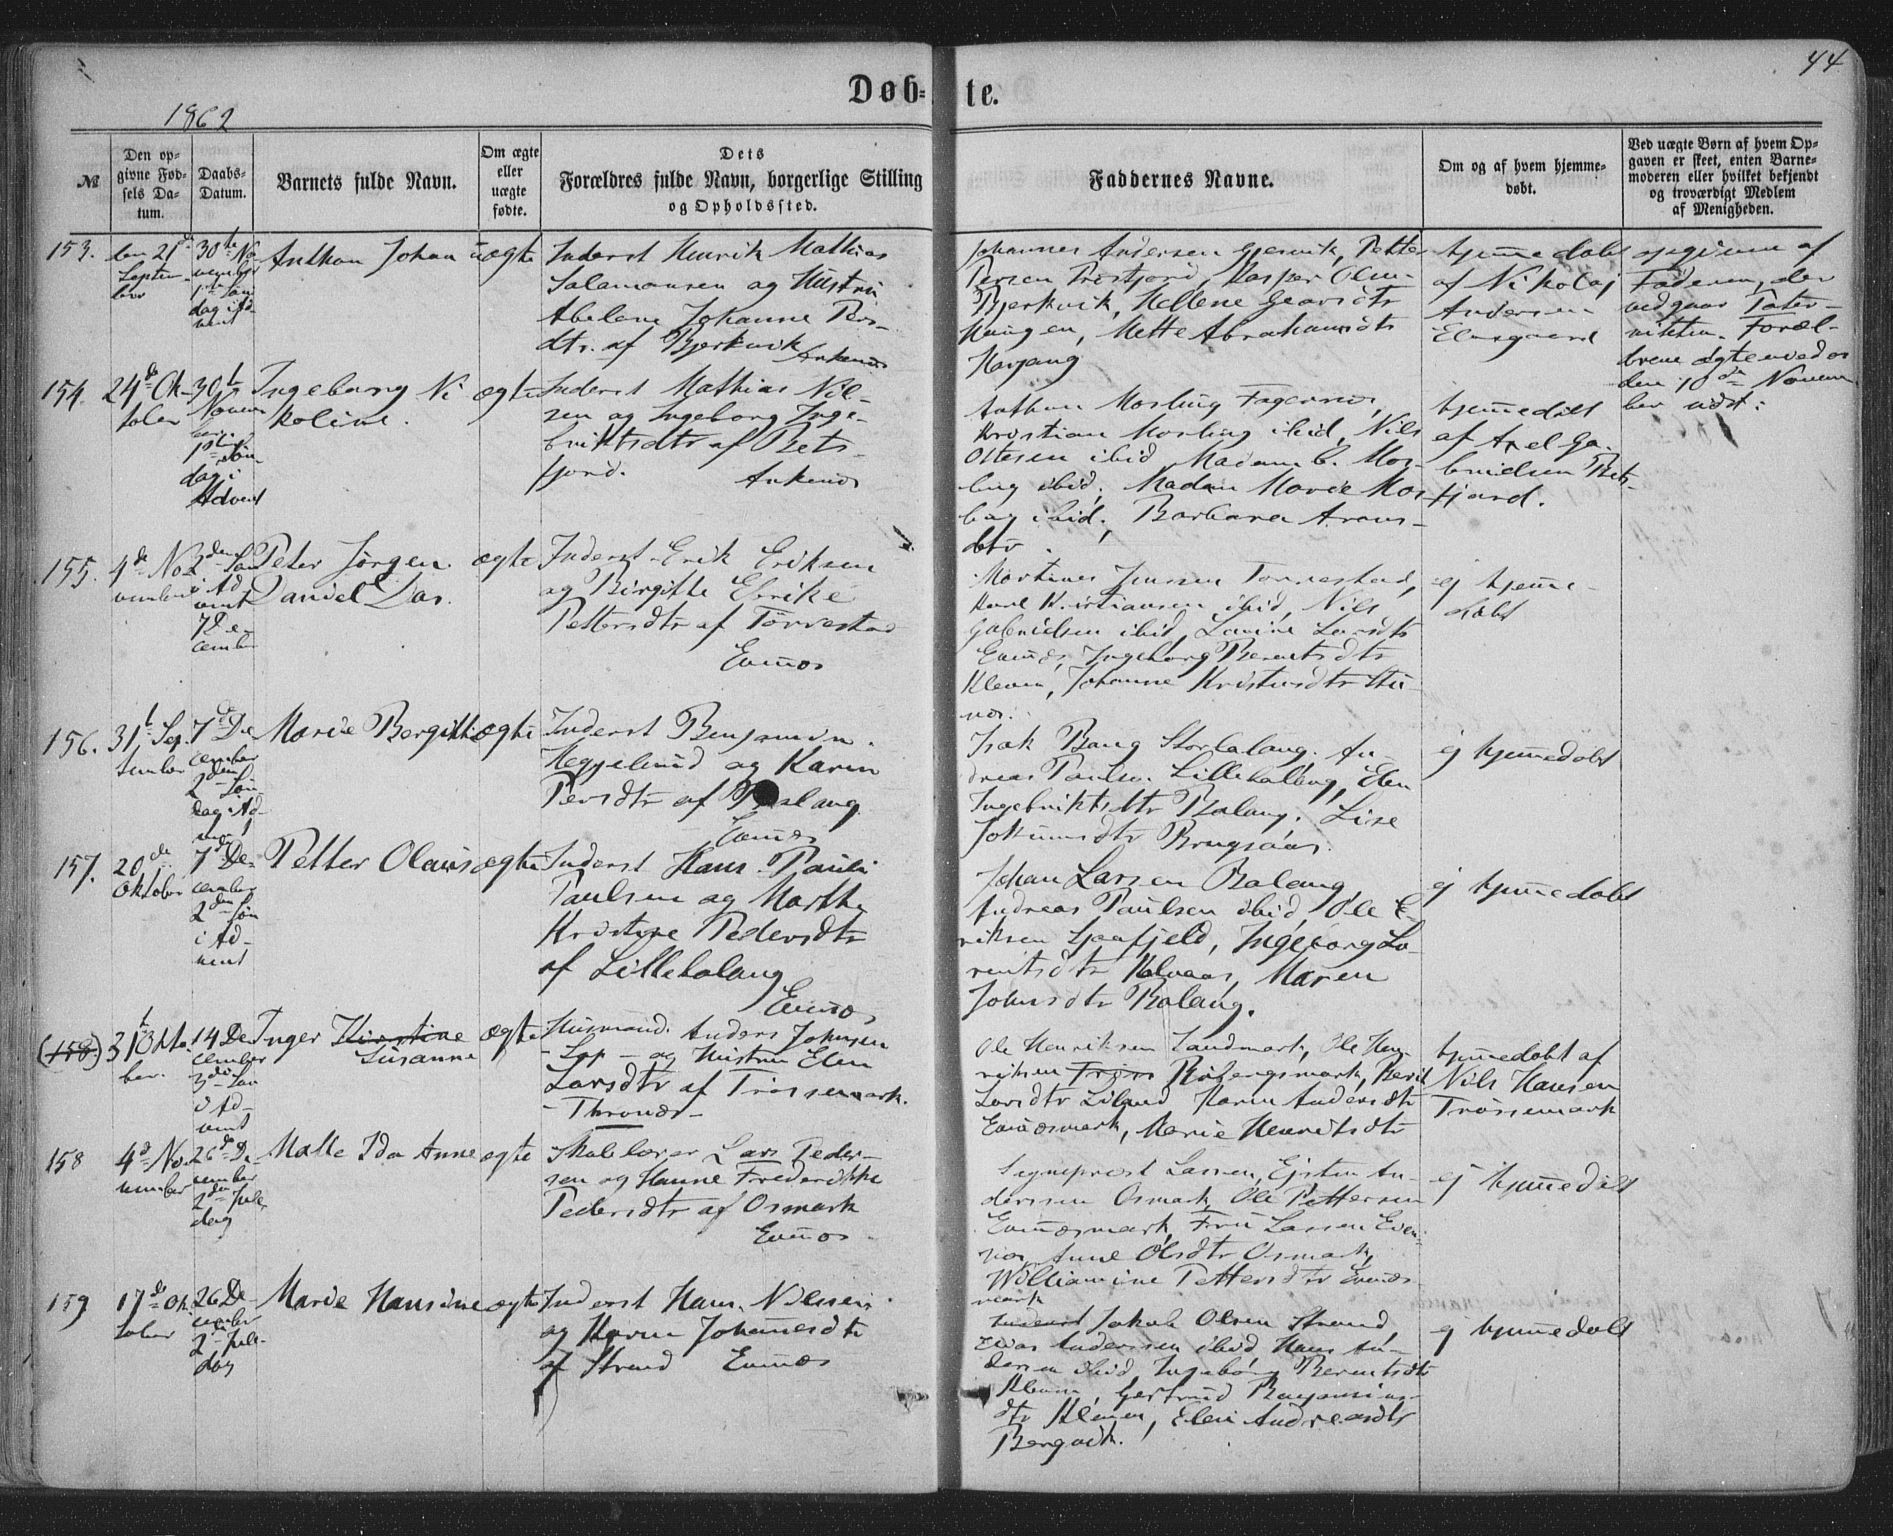 44
Døb-te.
1862
№
Den op-
givne Fød-
sels Da-
tum.
Daabs-
Datum.
Barnets fulde Navn.
Om ægte
eller
uægte
fødte.
Dets
Forældres fulde Navn, borgerlige Stilling
og Opholdssted.
Faddernes Navne.
Om og af hvem hjemme-
døbt.
Ved uægte Børn af hvem Op-
gaven er skeet, enten Barne-
moderen eller hvilket bekjendt
og troværdigt Medlem
af Menigheden.
153.
den 21de
Septem
ber
30te No
vember
1ste Søn
dag i Ad-
vent
Anthon Johan
uægte
Inderst Henrik Mathias
Salamonsen og Hustru
Abelone Johanne Pers-
dtr. af Bjerkvik
Ankenes
Johannes Andersen Gjersvik, Petter
Persen Trøstfjord, Kaspar Olsen
Bjerkvik, Hellene
Haugen, Mette Abrahamsdtr
Herjang
hjemmedøbt
af Nikolaj
Andersen
Elvegaard
opgiven af
Faderen, der
vedgaar Pater-
niteten. Foræl-
drene ægteviedes
den 10de Novem
ber udst:
154.
24de Ok-
tober
30te
Novem
ber
1ste Søn
dag i
Advent
Ingeborg Ni
koline.
ægte
Inderst Mathias Nil-
sen og Ingeborg Inge-
briktsdtr af Bets-
fjord.
Ankenes
Anthon Mosling Fagernes,
Kristian Mosling ibid, Nils
Ottesen ibid, Madam C. Mos-
ling ibid, Madam Marie Mos
ling ibid, Barbara Arons-
dtr.
hjemmedøbt
af Axel Ga-
brielsen Bets-
fjord.
155.
4de No-
vember
2den Søn
i Ad
vent
7 De-
cember
Peter Jørgen
Daniel Das.
ægte
Inderst Erik Eriksen
og Birgitte Erike
Pettersdtr af Tørrestad
Evenæs
Martines Jensen Tørrestad,
Karl Kristiansen ibid, Nils
Gabrielsen ibid, Lovine Larsdtr
Evenæs, Ingeborg Berentsdtr
Kleven, Johanne
næs.
ej hjemme-
døbt
156.
31te Sep
tember
7de De
cember
2den Søn
dag i Ad-
vent
Marie Bergitte
ægte
Inderst Benjamin
Heggelund og Karen
Persdtr af Balang
Evenæs
Isak Bang Storbalang, An-
dreas Paulsen Lillebalang, Elen
Ingebriktsdtr Balang, Lise
ej hjemmedøbt
157.
20de
Oktober
7de De-
cember
2den Søn
i Ad-
vent
Petter Olaus
ægte
Inderst Hans Pauli
Paulsen og Marthe
Kristine Pedersdtr
af Lillebalang
Evenæs
Johan Larsen Balang,
Andreas Paulsen ibid, Ole E-
riksen, Ingeborg La-
rentsdtr, Maren
Johnsdtr Balang.
ej hjemmedøbt
(158)
31te Okto
ber.
14 De
cember
3die Søn
i Ad-
vent
Inger Kirstine
Susanne
ægte
Husmand Anders Johnsen
- Lap - og Hustru Elen
Larsdtr af Trøssemark.
- Thronæs -
Ole Henriksen Sandmark, Ole Hen-
riksen Røbergsmark, Berit
Larsdtr Liland, Karen Andersdtr
Evenæsmark, Marie Henriksdtr
hjemmedøbt af
Nils Hansen
Trøssemark
158
4de No-
vember
26de De-
cember
2den Jule
dag
Malle Ida Anne
ægte
Skolelærer Lars Peder-
sen og Hanne Frederikke
Pedersdtr af Osmark
Evenæs
Sogneprest Lassen, Ejsten An-
derssen Osmark, Ole Pettersen
Evenæsmark, Fru Lassen Even-
næs, Anne Olsdtr Osmark,
Williamine Pettersdtr Evenæs-
mark
ej hjemmedøbt
159
17de Ok
tober
26 De-
cember
2 Jule-
dag
Marie Hansine
ægte
Inderst Hans Nilssen
og Karen Johannesdtr
af Strand Evenæs
Jakob Olsen Strand,
Anderssen ibid, Hans An-
dersen ibid, Ingeborg Berentsdtr
Kleven, Gertrud Benjamins-
dtr Kleven, Elen Andreasdtr
Bergvik.
ej hjemmedøbt